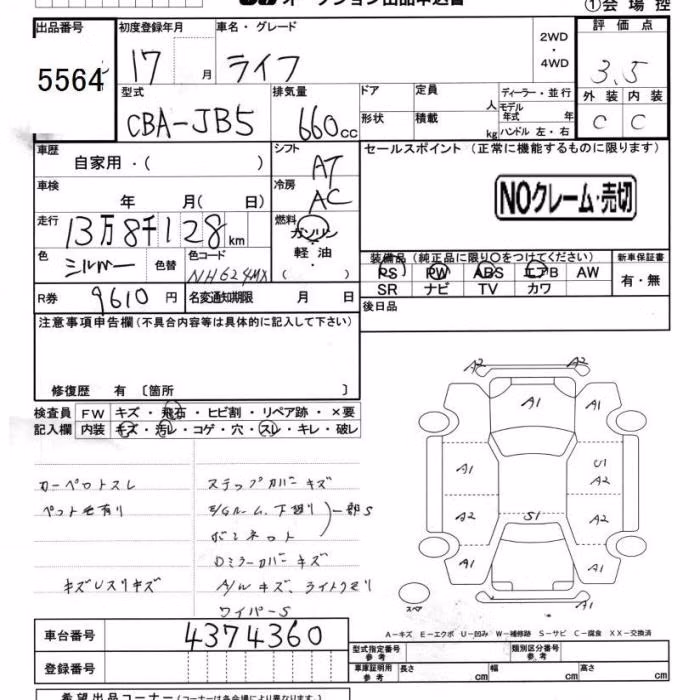 オークション出品申込書
①会場控
出品番号 5564
初度登録年月 17 月
車名・グレード ライフ
2WD・4WD
評価点 3.5
外装 内装
C C
型式 CBA-JB5
排気量 660cc
ドア 定員 人
形状 積載 kg
ディーラー・並行
モデル年式 年
ハンドル 左・右
車歴 自家用・( )
シフト AT
セールスポイント (正常に機能するものに限ります)
NOクレーム・売切
車検 年 月( 日)
冷房 AC
走行 13万8千128km
燃料 ガソリン・軽油・( )
色 シルバー 色替
色コード NH624MX
装備品 (純正品に限り○をつけてください)
PS PW ABS エアB AW
SR ナビ TV カワ
新車保証書 有・無
R券 9610円
名変通知期限 月 日
後日品
注意事項申告欄 (不具合内容等は具体的に記入して下さい)
修復歴 有 〔箇所 〕
検査員記入欄
FW キズ・飛石・ヒビ割・リペア跡・×要
内装 キズ・汚レ・コゲ・穴・スレ・キレ・破レ
カーペットスレ
ペット毛有り
キズUスリキズ
ステップカバーキズ
E/Gルーム、下廻り
ボンネット
一部S
Dミラーカバーキズ
A/Wキズ、ライトクモリ
ワイパーS
A2 A2
A1 A1
A1 U1 A2
A2 S1 A2
A1 A1
A1
スペア
A-キズ E-エクボ U-凹み W-補修跡 S-サビ C-腐食 XX-交換済
車台番号 4374360
登録番号
型式指定番号 参考
類別区分番号 参考
車庫証明用 参考 長さ cm 幅 cm 高さ cm
希望出品コーナー (コーナーは各会場により異なります。)